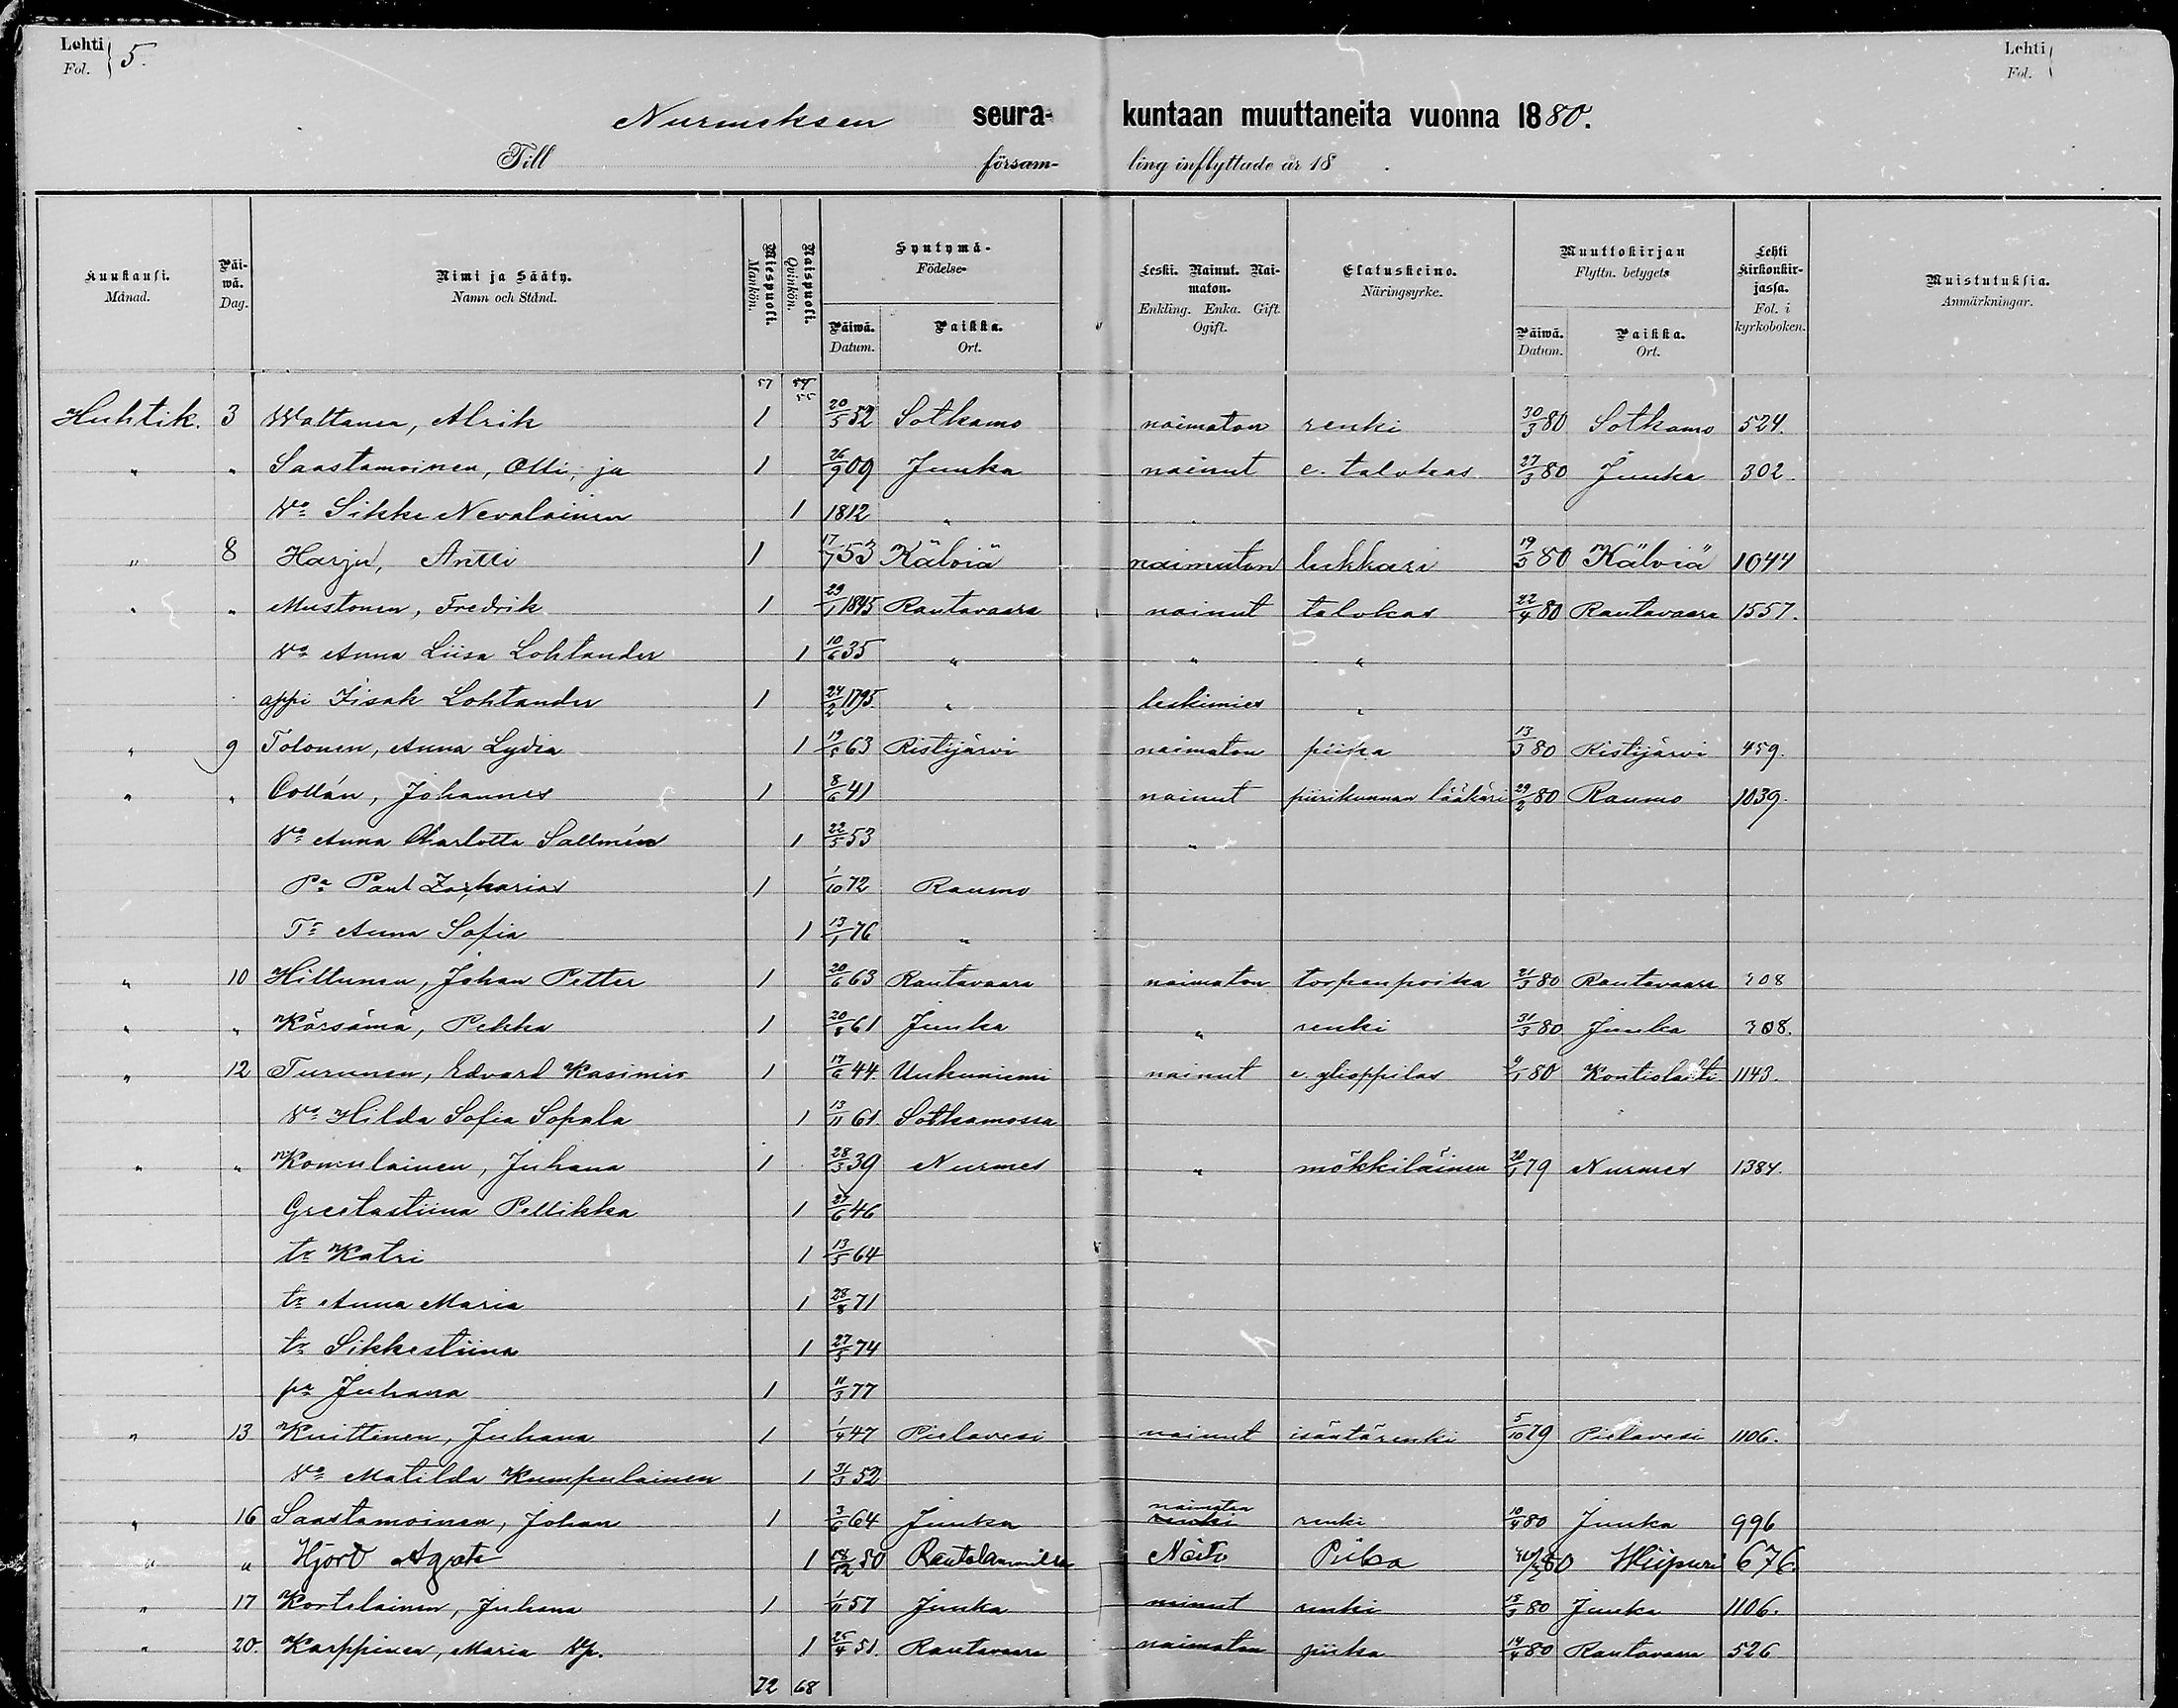 Lehti Fol. 5. Lehti Fol.
Nurmeksen seura- kuntaan muuttaneita vuonna 1880.
Till försam- ling inflyttade år 18 .
Kuukausi. Månad. Päi-wä. Dag. Nimi ja Sääty. Namn och Stånd. Miespuoli. Mankön. Naispuoli. Qvinkön. Syntymä- Födelse- Päiwä. Datum. Paikka. Ort. Leski. Nainut. Nai-maton. Enkling. Enka. Gift. Ogift. Elatuskeino. Näringsyrke. Muuttokirjan Flyttn. betygets Päiwä. Datum. Paikka. Ort. Lehti Kirkonkir-jassa. Fol. i kyrkoboken. Muistutuksia. Anmärkningar.
57 54 55
Huhtik. 3 Wattanen, Alrik 1 20/5 52 Sotkamo naimaton renki 30/3 80 Sotkamo 524.
" " Saastamoinen, Olli, ja 1 26/9 09 Juuka nainut e. talokas 27/3 80 Juuka 302
Vo Sikke Nevalainen 1 1812 " "
" 8 Harju, Antti 1 17/7 53 Kälviä naimaton lukkari 19/3 80 Kälviä 1044
" " Mustonen, Fredrik 1 29/1 1845 Rautavaara nainut talokas 22/4 80 Rautavaara 1557.
Vo Anna Liisa Lohtander 1 10/6 35 " " "
appi Iisak Lohtander 1 24/2 1795. " leskimies "
" 9 Tolonen, Anna Lydia 1 19/5 63 Ristijärvi naimaton piika 13/3 80 Ristijärvi 459.
" " Collán, Johannes 1 8/6 41 nainut piirikunnan lääkäri 29/2 80 Raumo 1039.
Vo Anna Charlotta Sallmén 1 22/5 53 "
Pa Paul Zacharias 1 1/10 72 Raumo
Tr Anna Sofia 1 13/1 76 "
" 10 Hiltunen, Johan Petter 1 20/6 63 Rautavaara naimaton torpanpoika 21/3 80 Rautavaara 308
" " Körsämä, Pekka 1 20/8 61 Juuka " renki 31/3 80 Juuka 308.
" 12 Turunen, Edvard Kasimir 1 17/6 44. Uukuniemi nainut e. ylioppilas 9/1 80 Kontiolahti 1143.
Vo Hilda Sofia Sopala 1 13/11 61. Sotkamossa
" " Komulainen, Juhana 1 28/3 39 Nurmes " mökkiläinen 20/1 79 Nurmes 1384.
Greetastiina Pellikka 1 27/6 46
tr Katri 1 13/5 64
tr Anna Maria 1 28/8 71
tr Sikkestiina 1 27/5 74
pa Juhana 1 11/3 77
" 13 Knittinen, Juhana 1 1/4 47 Pielavesi nainut isäntärenki 5/10 79 Pielavesi 1106.
Vo Matilda Kumpulainen 1 31/3 52
" 16 Saastamoinen, Johan 1 3/6 64 Juuka naimaton renki renki 10/4 80 Juuka 996
" " Hjord Agata 1 18/12 50 Rautalammilla Neito Piika 80 Wiipuri 676.
" 17 Kortelainen, Juhana 1 1/11 57 Juuka nainut renki 13/3 80 Juuka 1106.
" 20. Karppinen, Maria Vp. 1 25/4 51. Rautavaara naimaton piika 14/4 80 Rautavaara 526
72 68